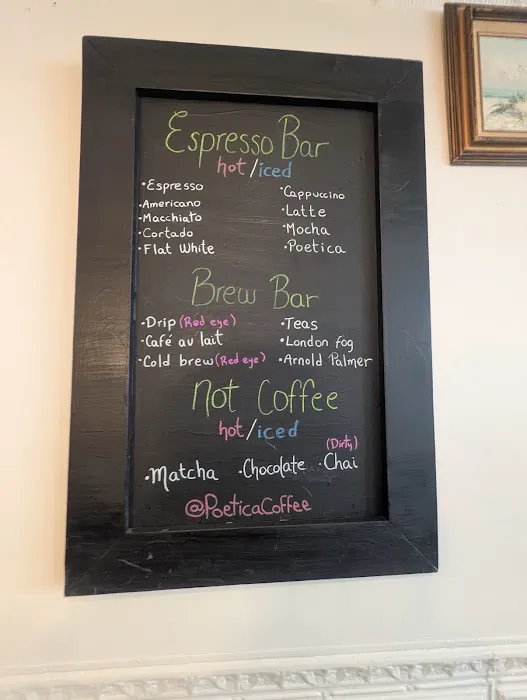 Espresso Bar
hot/iced
•Espresso
•Americano
•Macchiato
•Cortado
•Flat White
•Cappuccino
•Latte
•Mocha
•Poetica
Brew Bar
•Drip (Red eye)
•Café au lait
•Cold brew (Red eye)
•Teas
•London fog
•Arnold Palmer
Not Coffee
hot/iced
•Matcha •Chocolate •Chai (Dirty)
@PoeticaCoffee